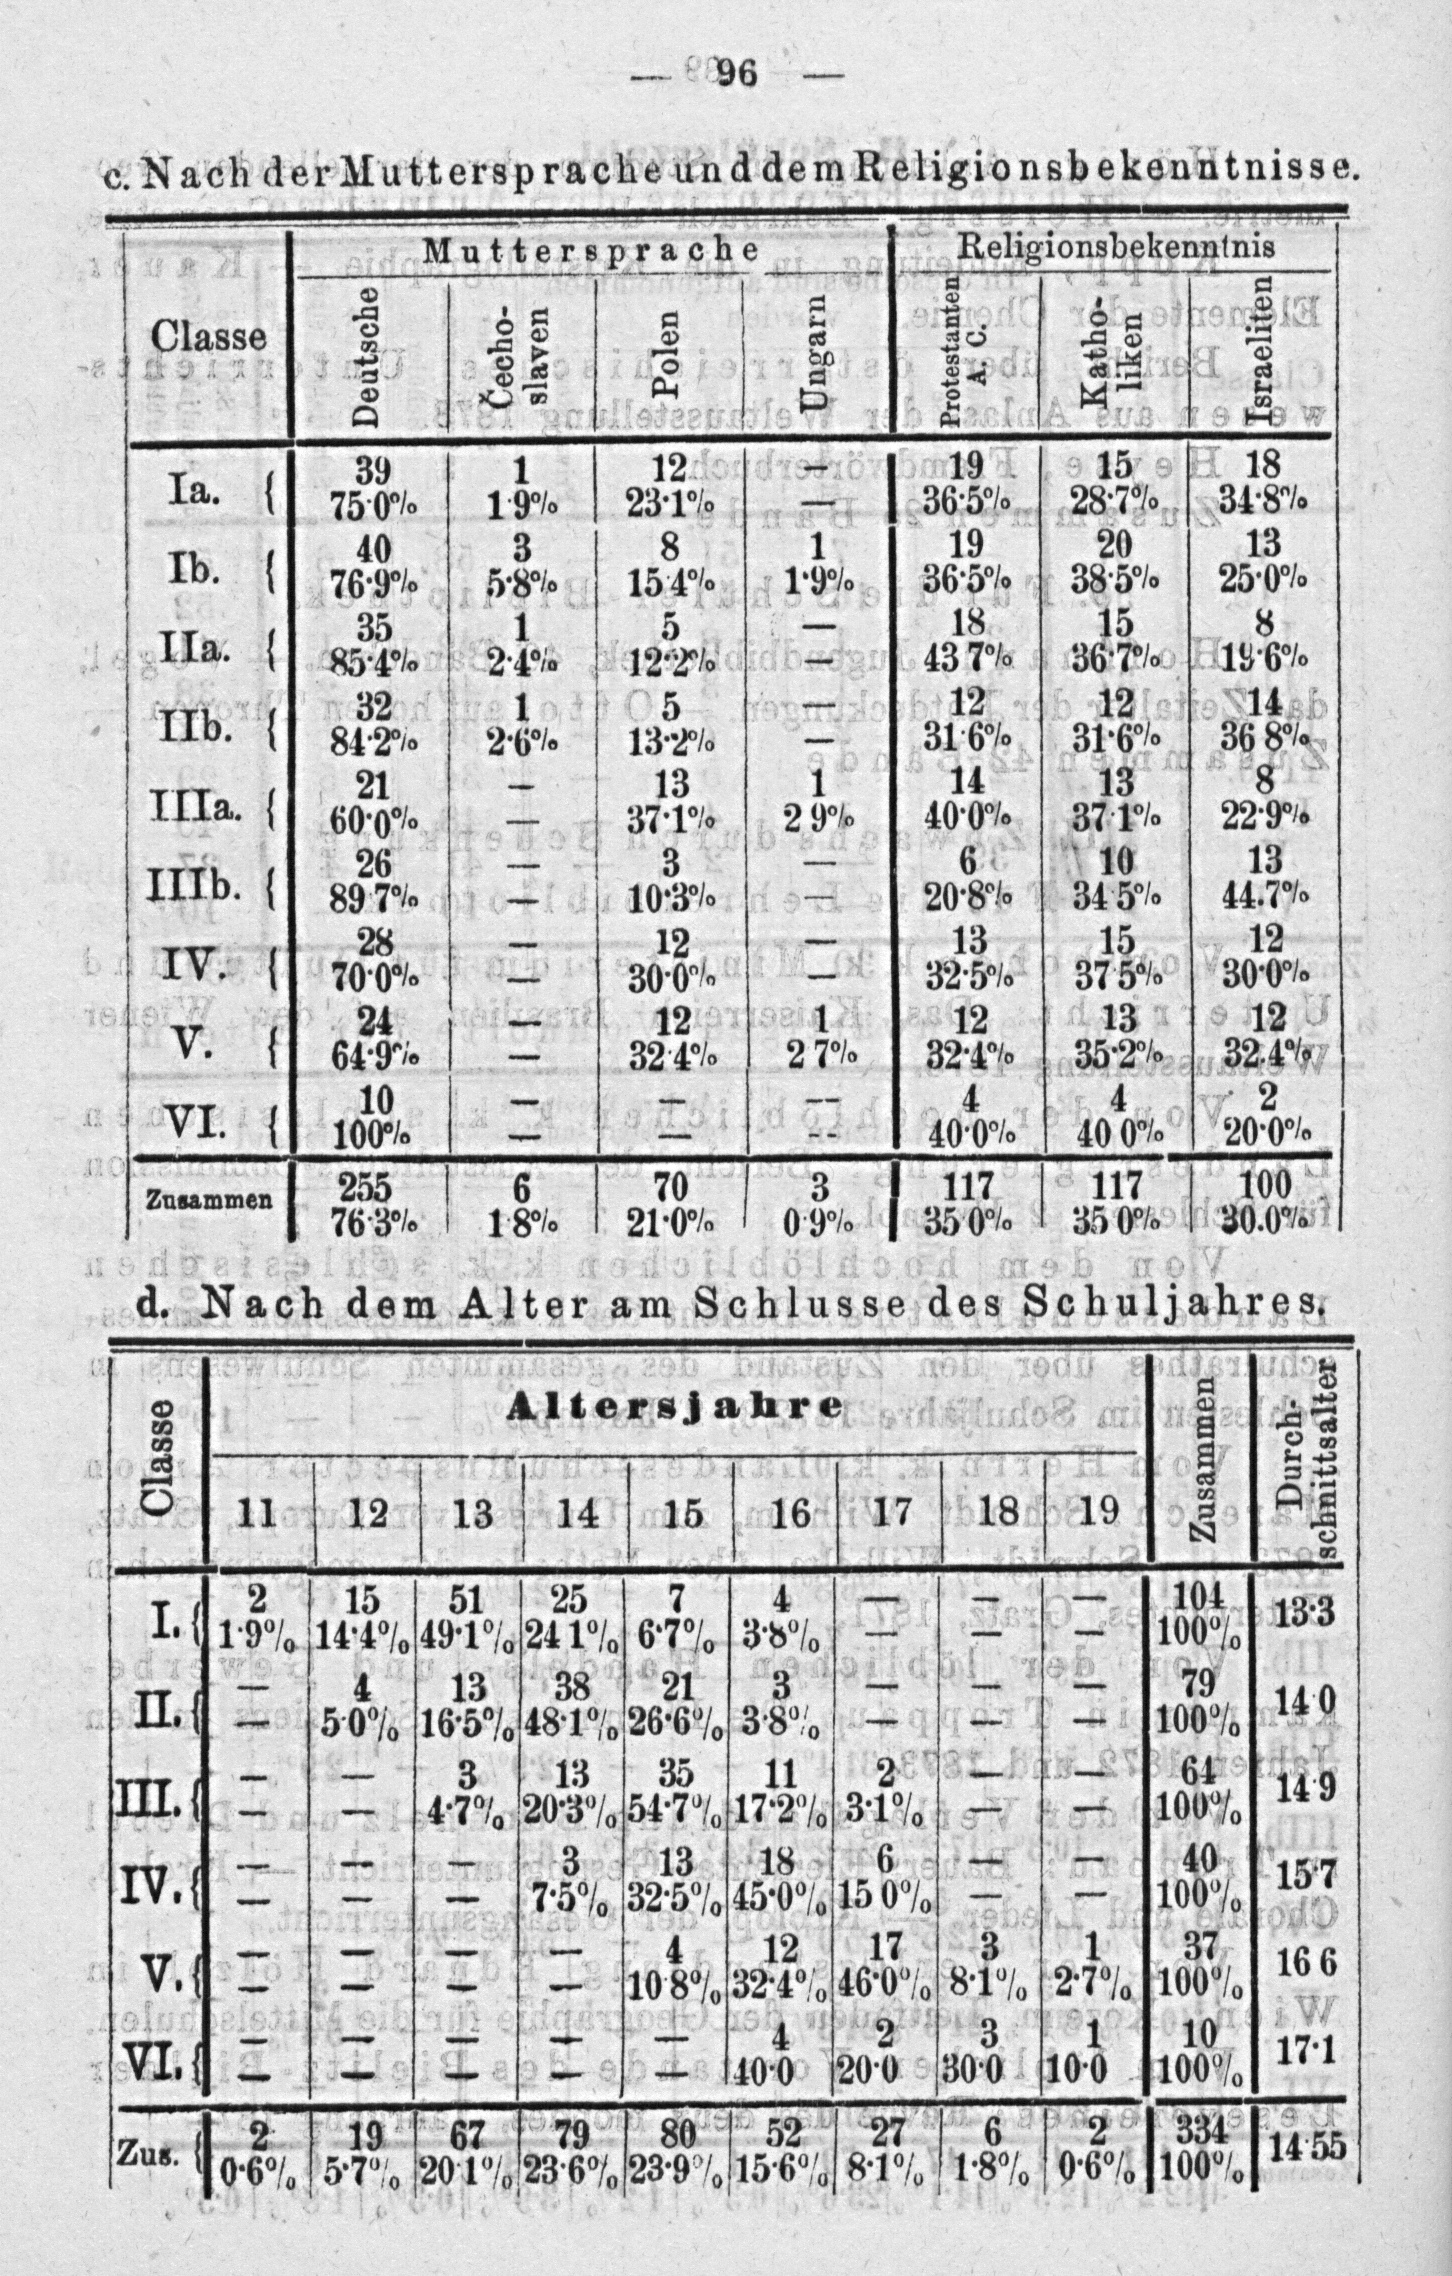 — 96 —
c. Nach der Muttersprache und dem Religionsbekenntnisse.
Classe Muttersprache Religionsbekenntnis
Deutsche Čecho-slaven Polen Ungarn Protestanten A. C. Katho-liken Israeliten
Ia. { 39 1 12 — 19 15 18
75·0% 1·9% 23·1% — 36·5% 28·7% 34·8%
Ib. { 40 3 8 1 19 20 13
76·9% 5·8% 15 4% 1·9% 36·5% 38·5% 25·0%
IIa. { 35 1 5 — 18 15 8
85·4% 2·4% 12·2% — 43 7% 36·7% 19·6%
IIb. { 32 1 5 — 12 12 14
84·2% 2·6% 13·2% — 31·6% 31·6% 36 8%
IIIa. { 21 — 13 1 14 13 8
60·0% — 37·1% 2 9% 40·0% 37·1% 22·9%
IIIb. { 26 — 3 — 6 10 13
89 7% — 10·3% — 20·8% 34 5% 44.7%
IV. { 28 — 12 — 13 15 12
70·0% — 30·0% — 32·5% 37 5% 30·0%
V. { 24 — 12 1 12 13 12
64·9% — 32 4% 2 7% 32·4% 35·2% 32.4%
VI. { 10 — — — 4 4 2
100% — — — 40·0% 40 0% 20·0%
Zusammen 255 6 70 3 117 117 100
76·3% 1·8% 21·0% 0·9% 35 0% 35 0% 30.0%
d. Nach dem Alter am Schlusse des Schuljahres.
Classe Altersjahre Zusammen Durch-schnittsalter
11 12 13 14 15 16 17 18 19
I. { 2 15 51 25 7 4 — — — 104 13·3
1·9% 14·4% 49·1% 24 1% 6·7% 3·8% — — — 100%
II. { — 4 13 38 21 3 — — — 79 14·0
— 5·0% 16·5% 48·1% 26·6% 3·8% — — — 100%
III. { — — 3 13 35 11 2 — — 64 14·9
— — 4·7% 20·3% 54·7% 17·2% 3·1% — — 100%
IV. { — — — 3 13 18 6 — — 40 15·7
— — — 7·5% 32·5% 45·0% 15 0% — — 100%
V. { — — — — 4 12 17 3 1 37 16 6
— — — — 10 8% 32·4% 46·0% 8·1% 2·7% 100%
VI. { — — — — — 4 2 3 1 10 17·1
— — — — — 40·0 20·0 30·0 10·0 100%
Zus. { 2 19 67 79 80 52 27 6 2 334 14·55
0·6% 5·7% 20 1% 23·6% 23·9% 15·6% 8·1% 1·8% 0·6% 100%